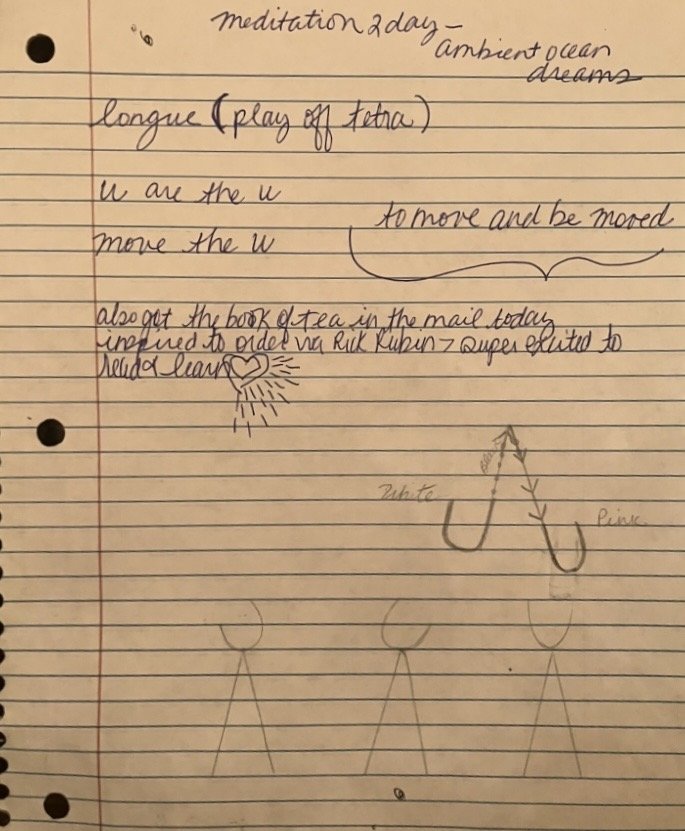 meditation 2day -
ambient ocean
dreams
longue (play off tetra)
u are the u
to move and be moved
move the u
also got the book of tea in the mail today
inspired to order via Rick Rubin > super excited to
read & learn
White
Pink